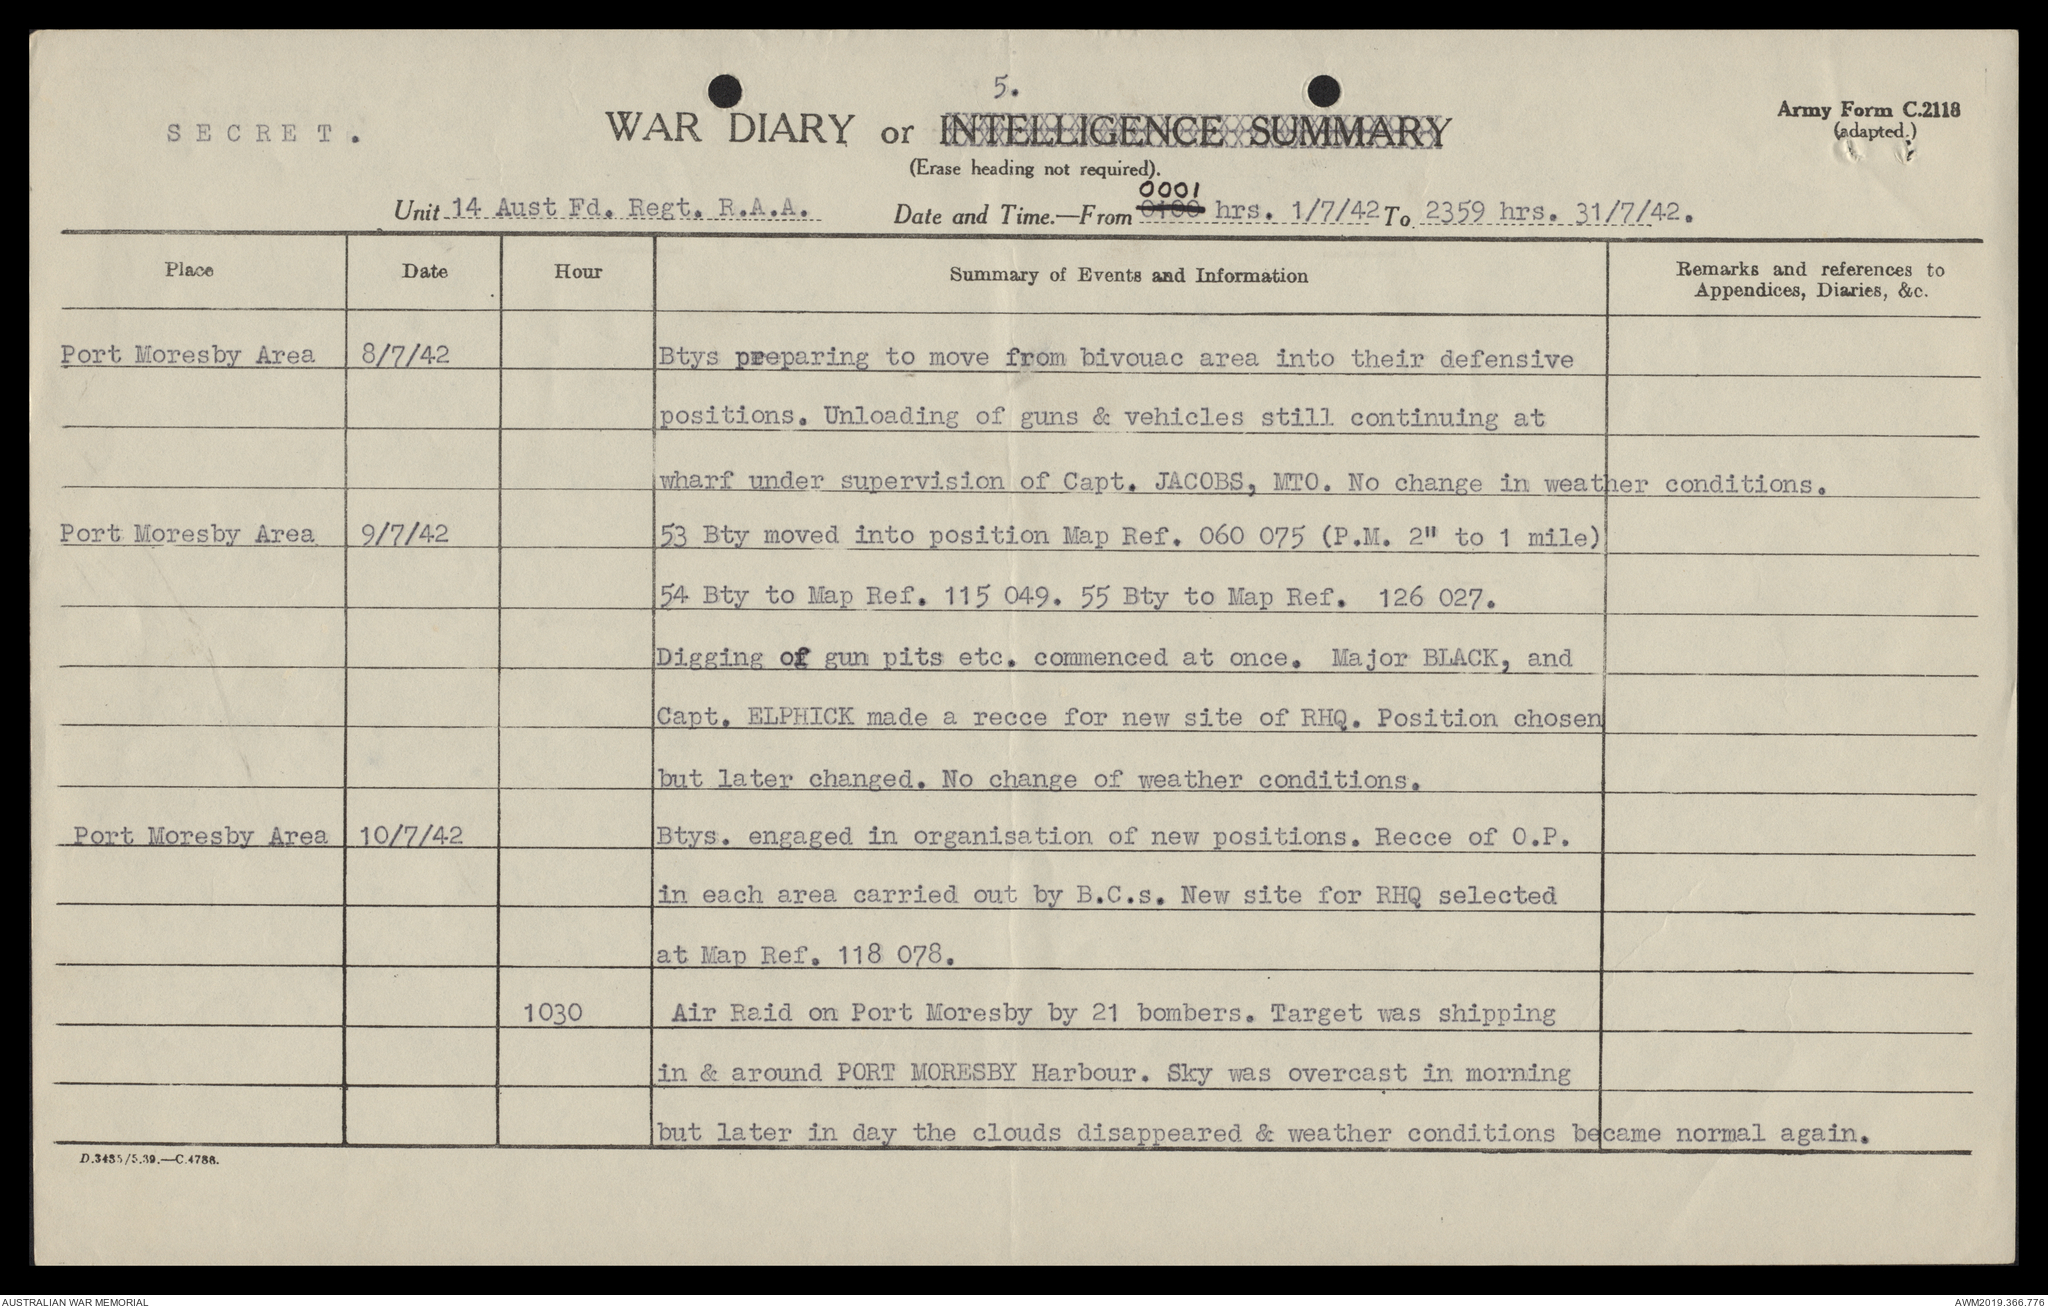 5.
SECRET.
WAR DIARY or INTELLIGENCE SUMMARY
Army Form C.2118
(adapted.)
(Erase heading not required).
0001
Unit 14 Aust Fd. Regt. R.A.A. Date and Time.—From 0100 hrs. 1/7/42 To 2359 hrs. 31/7/42.
Place Date Hour Summary of Events and Information Remarks and references to
Appendices, Diaries, &c.
Port Moresby Area 8/7/42 Btys preparing to move from bivouac area into their defensive
positions. Unloading of guns & vehicles still continuing at
wharf under supervision of Capt. JACOBS, MTO. No change in weather conditions.
Port Moresby Area 9/7/42 53 Bty moved into position Map Ref. 060 075 (P.M. 2" to 1 mile)
54 Bty to Map Ref. 115 049. 55 Bty to Map Ref. 126 027.
Digging of gun pits etc. commenced at once. Major BLACK, and
Capt. ELPHICK made a recce for new site of RHQ. Position chosen
but later changed. No change of weather conditions.
Port Moresby Area 10/7/42 Btys. engaged in organisation of new positions. Recce of O.P.
in each area carried out by B.C.s. New site for RHQ selected
at Map Ref. 118 078.
1030 Air Raid on Port Moresby by 21 bombers. Target was shipping
in & around PORT MORESBY Harbour. Sky was overcast in morning
but later in day the clouds disappeared & weather conditions became normal again.
D.3485/5.39.—C.4788.
AUSTRALIAN WAR MEMORIAL AWM2019.366.776